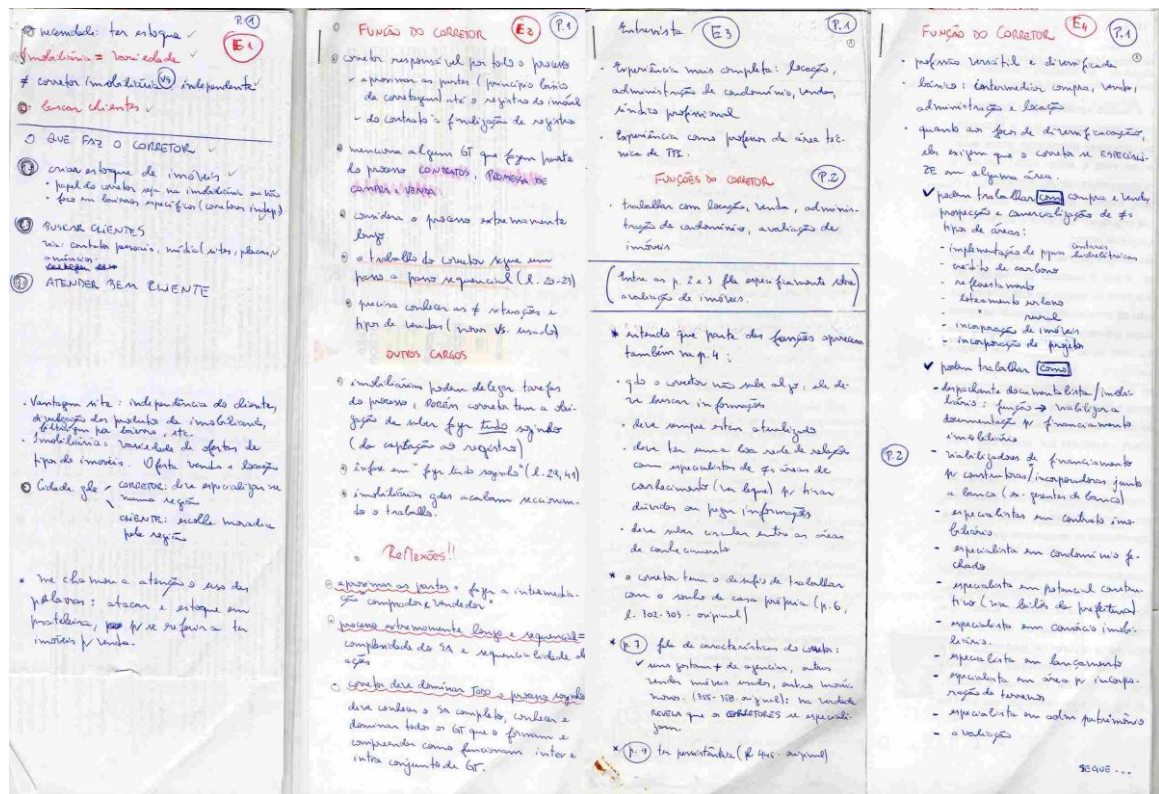 P.1
necessidade: ter estoque ✓
E1
Imobiliária = variedade ✓
≠ corretor imobiliária vs independente ✓
buscar clientes ✓
O QUE FAZ O CORRETOR ✓
criar estoque de imóveis ✓
• papel do corretor seja na imobiliária ou não
• foco em bairros específicos (corretores indep)
BUSCAR CLIENTES
via: contatos pessoais, mídia (sites, placas,
anúncios.
ATENDER BEM CLIENTE
• Vantagem site: independência do cliente,
divulgação dos produtos da imobiliária,
filtragem por bairro, etc.
• Imobiliária: variedade de ofertas de
tipos de imóveis. Oferta venda e locação
Cidade gde CORRETOR: deve especializar-se
numa região
CLIENTE: escolhe moradia
pela região
* me chamou a atenção o uso das
palavras: atacar e estoque em
prateleira, p/ se referir a ter
imóveis p/ venda.
FUNÇÃO DO CORRETOR E2 P.1
corretor responsável por todo o processo
✓ aproximar as partes (princípio básico
da corretagem) até o registro do imóvel
- do contrato à finalização do registro
menciona alguns GT que fazem parte
do processo CONTRATOS, PROMESSA DE
COMPRA VENDA
considera o processo extremamente
longo
o trabalho do corretor segue um
passo a passo sequencial (l. 20-23)
precisa conhecer as ≠ situações e
tipos de vendas (novo VS. usado)
OUTROS CARGOS
imobiliárias podem delegar tarefas
do processo, PORÉM corretor tem a obri-
gação de saber fazer tudo sozinho
(da captação ao registro)
enfase em "fazer tudo sozinho" (l. 29, 41)
imobiliárias gdes acabam seccionan-
do o trabalho.
Reflexões!!
aproximar as partes = fazer a intermedia-
ção "comprador x vendedor"
processo extremamente longo e sequencial =
complexidade do SA e sequencialidade de
ações
corretor deve dominar TODO o processo sozinho
deve conhecer o SA completo, conhecer e
dominar todos os GT que o formam e
compreender como funcionam inter e
intra conjunto de GT.
Entrevista E3 P.1
• Experiência mais completa: locação,
administração de condomínio, vendas,
síndico profissional
• Experiência como professor da área téc-
nica de TTI.
FUNÇÕES DO CORRETOR P.2
• trabalhar com locação, venda, adminis-
tração de condomínio, avaliação de
imóveis
Entre as p. 2 e 3 fla especificamente sobre
avaliação de imóveis.
* entendo que parte das funções aparecem
também na p. 4:
• qdo o corretor não sabe algo, ele de-
ve buscar informações
• deve sempre estar atualizado
• deve ter uma boa rede de relações
com especialistas de ≠s áreas de
conhecimento (um leque) p/ tirar
dúvidas ou pegar informações
• deve saber circular entre as áreas
de conhecimento
* o corretor tem o desafio de trabalhar
com o sonho da casa própria (p. 6,
l. 302-303 - original)
* p. 7 fla de características do corretor:
✓ uns gostam + de agenciar, outros
vender imóveis usados, outros imóveis
novos. (355-358 original): na verdade
REVELA que os CORRETORES se especiali-
zam
* p. 9 ter persistência (l. 445 - original)
FUNÇÃO DO CORRETOR E4 P.1
• profissão versátil e diversificada
• básico: intermediar compra, venda,
administração e locação
• quanto ao foco de diversificação,
elas exigem que o corretor se ESPECIALI-
ZE em alguma área.
✓ podem trabalhar com compra e venda,
prospecção e comercialização de ≠s
tipos de áreas:
- implementação de centrais hidrelétricas
- crédito de carbono
- reflorestamento
- loteamento urbano
- " rural
- incorporação de imóveis
- incorporação de projetos
✓ podem trabalhar como
- despachante documentalista/imobi-
liário: função → viabilizar a
documentação p/ financiamento
imobiliário
P.2
- viabilizadores de financiamento
p/ construtoras/incorporadoras junto
a banco (ex-gerentes de banco)
- especialistas em contrato imo-
biliário
- especialista em condomínio fe-
chado
- especialista em potencial constru-
tivo (via leilão da prefeitura)
- especialista em consórcio imobi-
liário.
- especialista em lançamento
- especialista em área p/ incorpo-
ração de terrenos
- especialista em patrimônio
- avaliação
SEGUE...